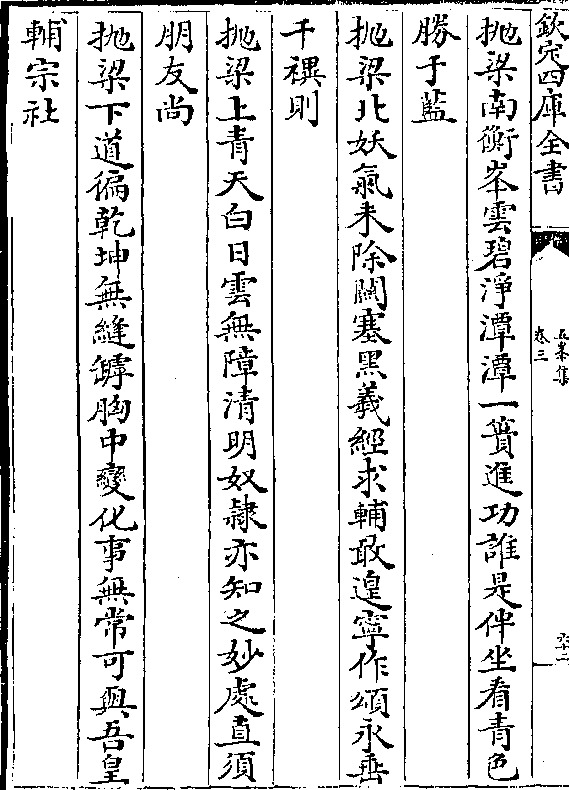 欽定四庫全書
五峯集
卷三
六十二
抛梁南衡峯雲碧淨潭潭一簣進功誰是伴坐看青色
勝于藍
抛梁北妖氣未除關塞黑羲經求輔敢遑寧作頌永垂
千禩則
抛梁上青天白日雲無障清明奴隷亦知之妙處直須
朋友尚
抛梁下道徧乾坤無縫罅胸中變化事無常可與吾皇
輔宗社